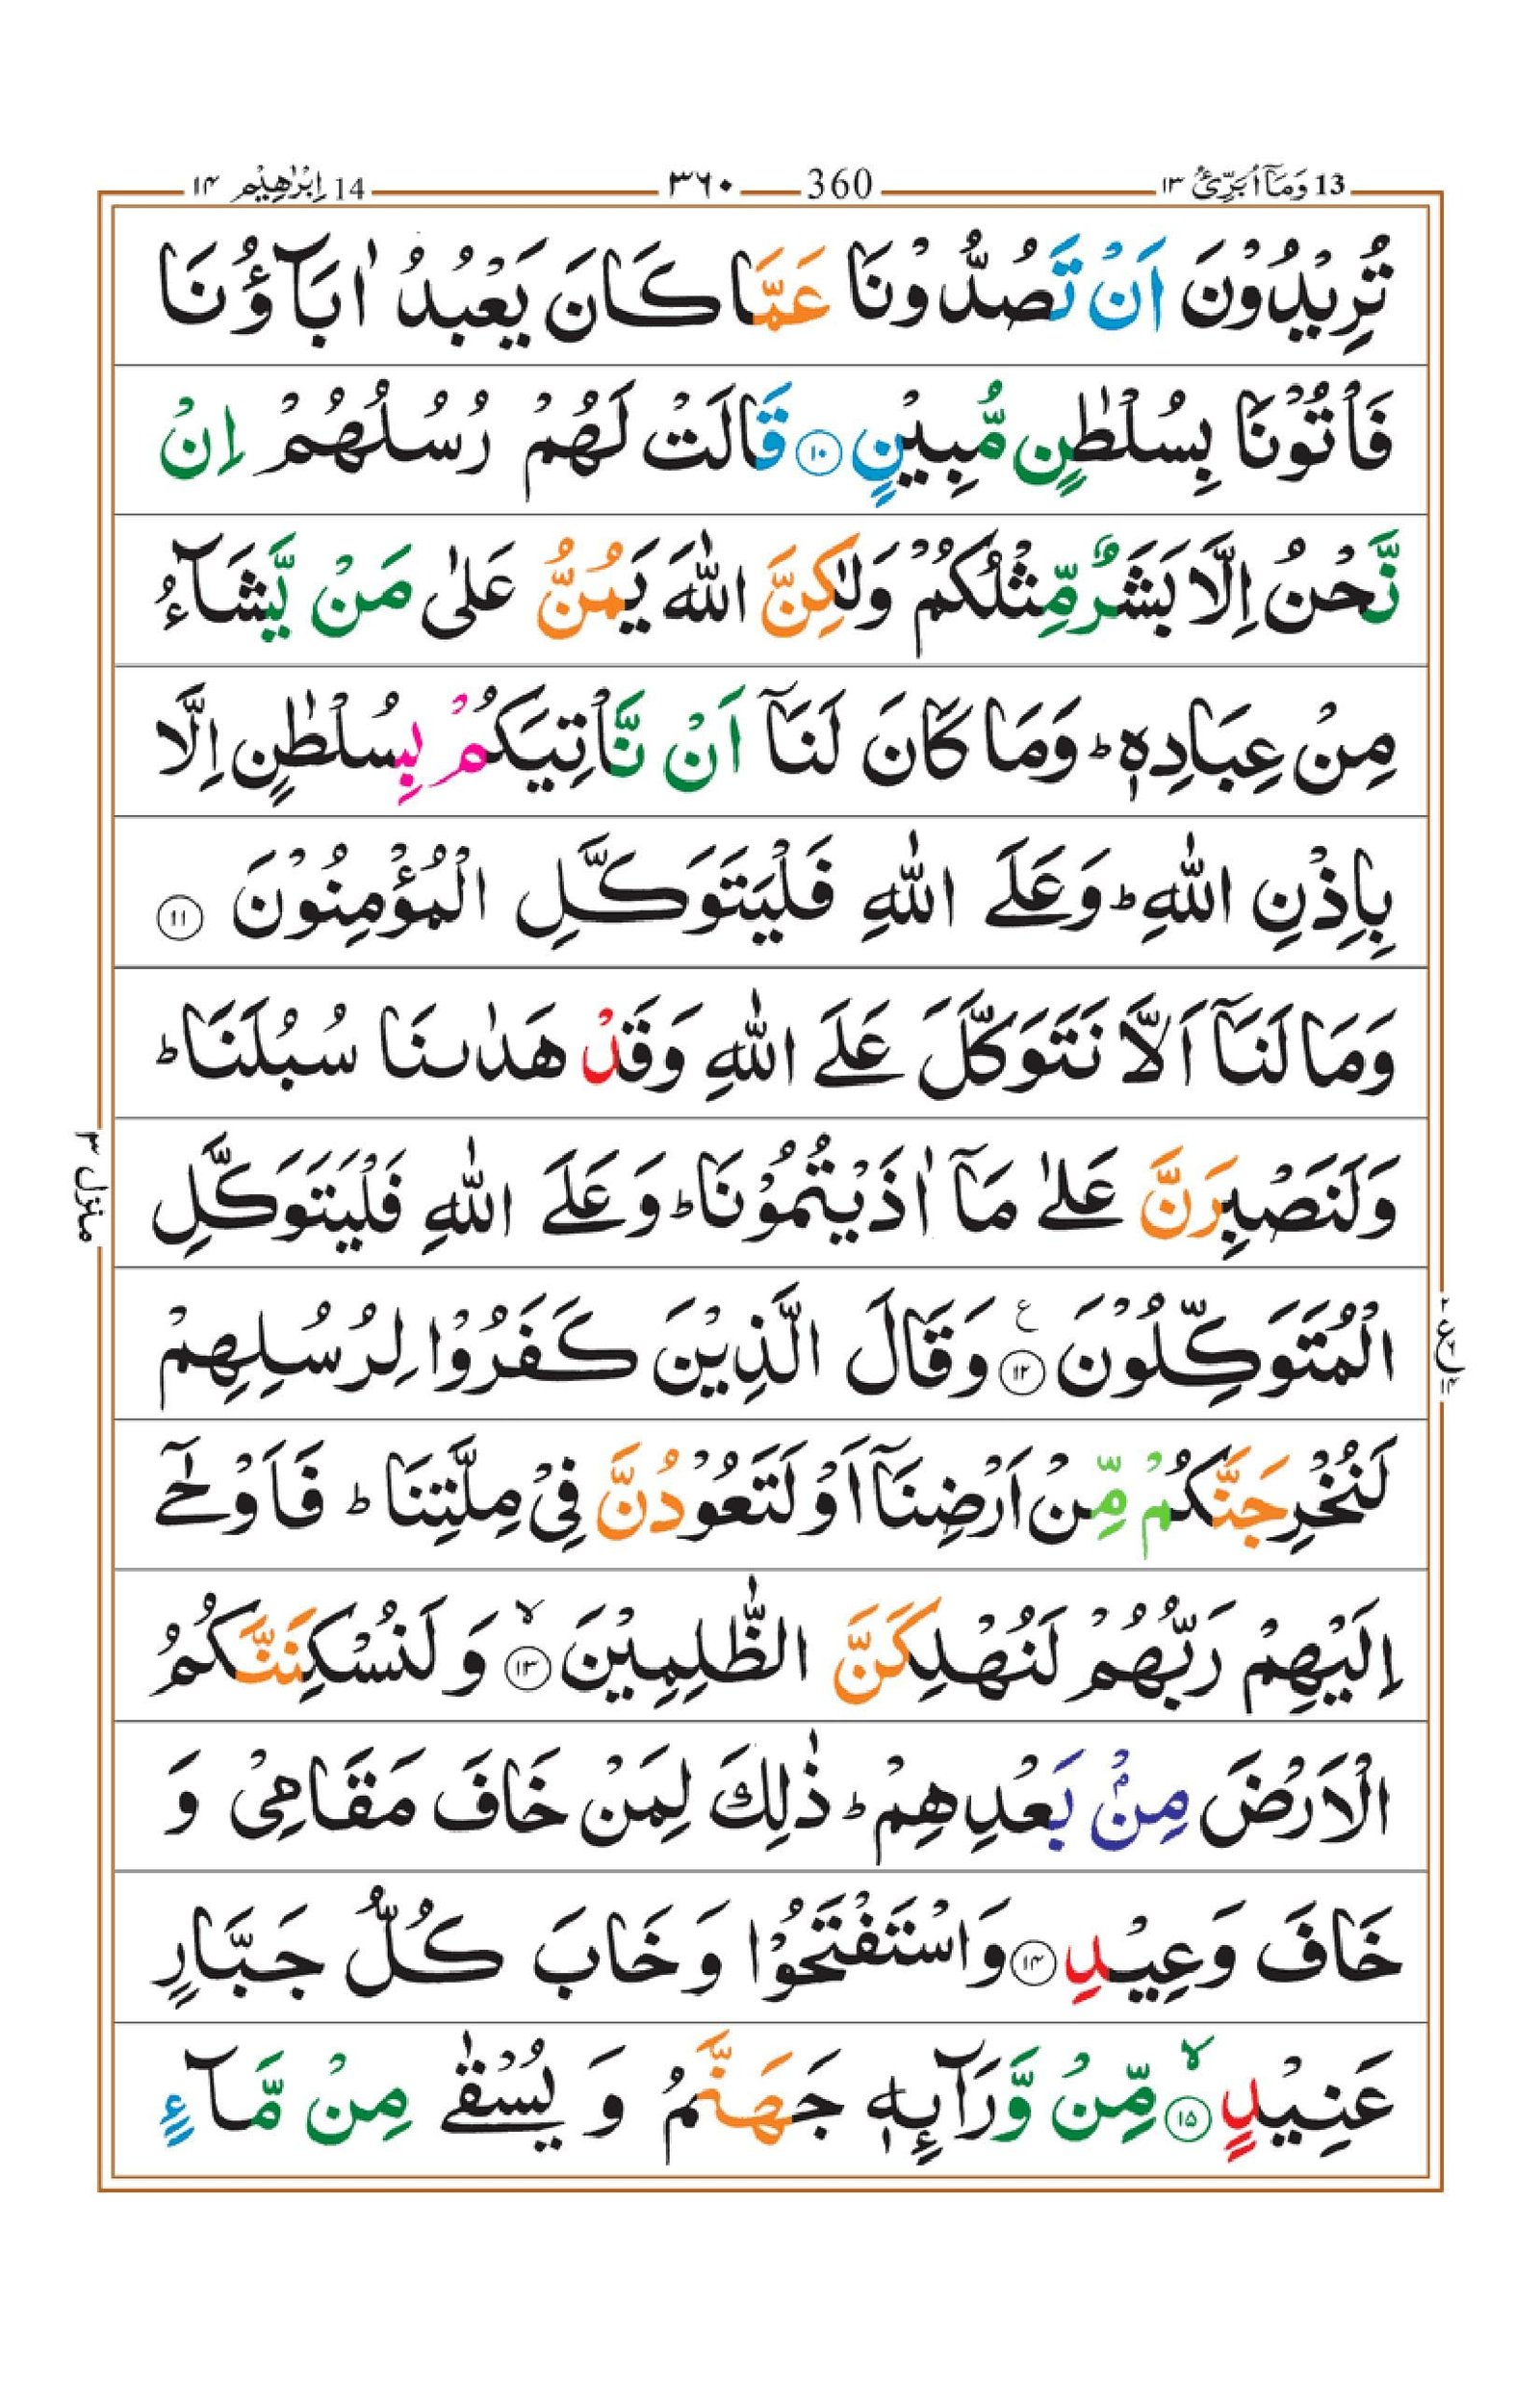 13 وَمَآ اُبَرِّئُ ۱۳
360 ۳۶۰
14 اِبْرٰهِيْم ۱۴
تُرِيْدُوْنَ اَنْ تَصُدُّوْنَا عَمَّا كَانَ يَعْبُدُ اٰبَآؤُنَا
فَاْتُوْنَا بِسُلْطٰنٍ مُّبِيْنٍ ۱۰ قَالَتْ لَهُمْ رُسُلُهُمْ اِنْ
نَّحْنُ اِلَّا بَشَرٌ مِّثْلُكُمْ وَلٰكِنَّ اللّٰهَ يَمُنُّ عَلٰى مَنْ يَّشَآءُ
مِنْ عِبَادِهٖ ؕ وَمَا كَانَ لَنَآ اَنْ نَّاْتِيَكُمْ بِسُلْطٰنٍ اِلَّا
بِاِذْنِ اللّٰهِ ؕ وَعَلَى اللّٰهِ فَلْيَتَوَكَّلِ الْمُؤْمِنُوْنَ ۱۱
وَمَا لَنَآ اَلَّا نَتَوَكَّلَ عَلَى اللّٰهِ وَقَدْ هَدٰىنَا سُبُلَنَا ؕ
وَلَنَصْبِرَنَّ عَلٰى مَآ اٰذَيْتُمُوْنَا ؕ وَعَلَى اللّٰهِ فَلْيَتَوَكَّلِ
الْمُتَوَكِّلُوْنَ ۱۲ ع وَقَالَ الَّذِيْنَ كَفَرُوْا لِرُسُلِهِمْ
لَنُخْرِجَنَّكُمْ مِّنْ اَرْضِنَآ اَوْ لَتَعُوْدُنَّ فِيْ مِلَّتِنَا ؕ فَاَوْحٰٓى
اِلَيْهِمْ رَبُّهُمْ لَنُهْلِكَنَّ الظّٰلِمِيْنَ ۙ ۱۳ وَ لَنُسْكِنَنَّكُمُ
الْاَرْضَ مِنْۢ بَعْدِهِمْ ؕ ذٰلِكَ لِمَنْ خَافَ مَقَامِيْ وَ
خَافَ وَعِيْدِ ۱۴ وَاسْتَفْتَحُوْا وَخَابَ كُلُّ جَبَّارٍ
عَنِيْدٍ ۙ ۱۵ مِّنْ وَّرَآئِهٖ جَهَنَّمُ وَ يُسْقٰى مِنْ مَّآءٍ
منزل ۳
۲ ع ۱۴